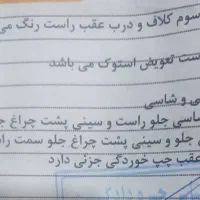 سوم کلاف و درب عقب راست رنگ می
ست تعویض استوک می باشد
ی و شاسی
اسی جلو راست و سینی پشت چراغ ج
جلو و سینی پشت چراغ جلو سمت را
عقب چپ خوردگی جزئی دارد